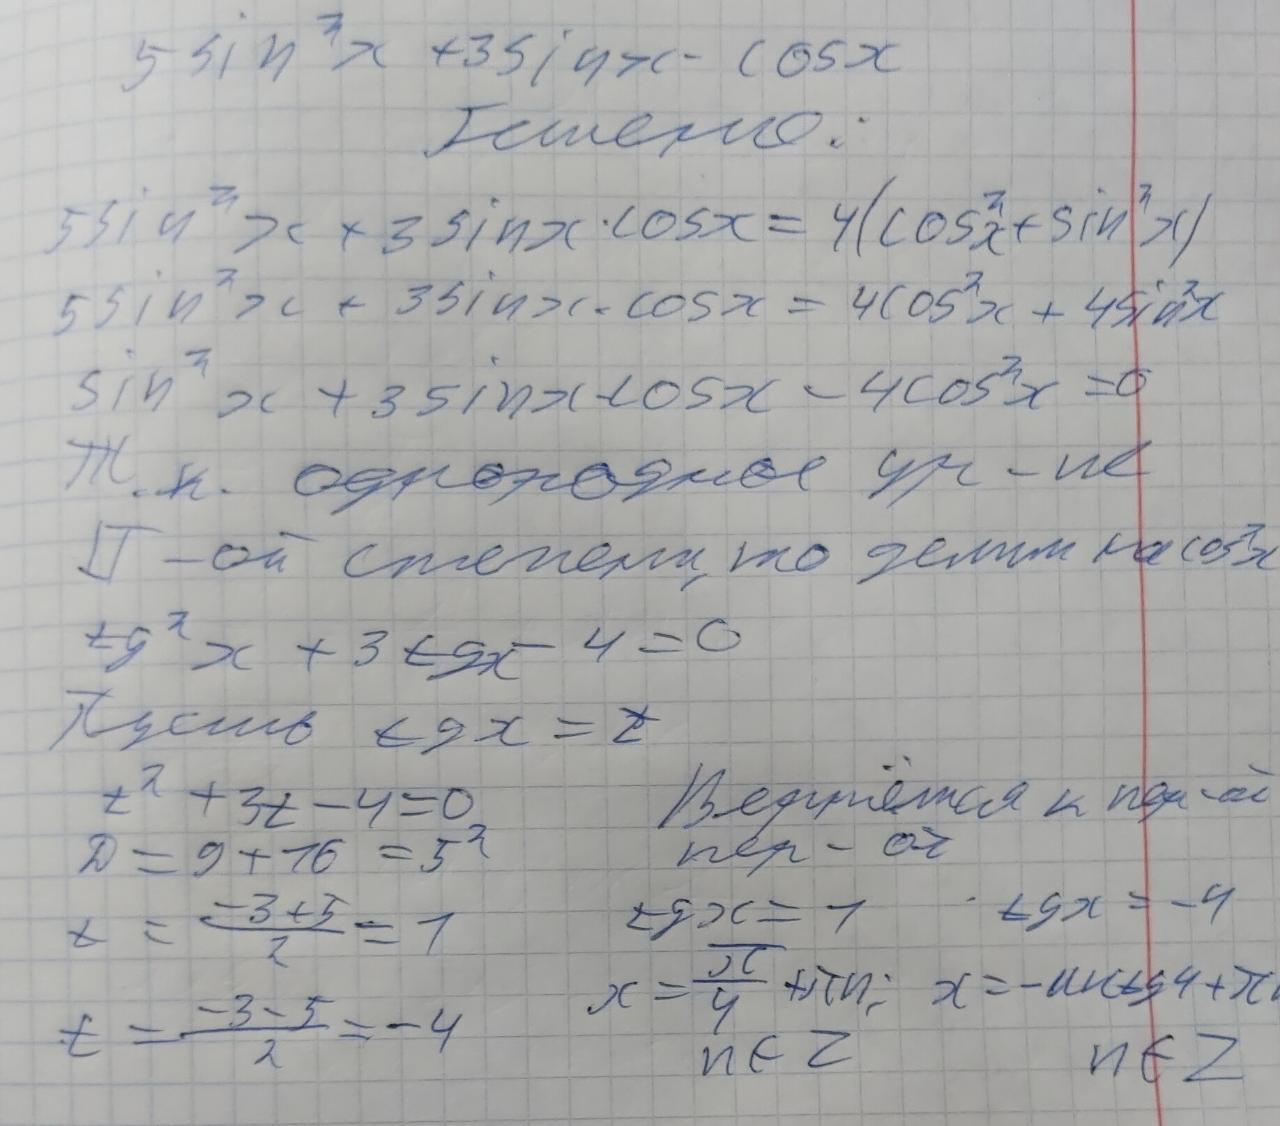 5sin²x + 3sinx · cosx
Решено:
5sin²x + 3sinx · cosx = 4(cos²x + sin²x)
5sin²x + 3sinx · cosx = 4cos²x + 4sin²x
sin²x + 3sinx · cosx - 4cos²x = 0
Т.к. однородное ур-ие
II-ой степени, то делим на cos²x
tg²x + 3tgx - 4 = 0
Пусть tgx = t
t² + 3t - 4 = 0
D = 9 + 16 = 5²
t = (-3+5)/2 = 1
t = (-3-5)/2 = -4
Вернёмся к пер-ой
пер-ой
tgx = 1 tgx = -4
x = π/4 + πn; x = -arctg4 + πn
n ∈ Z n ∈ Z